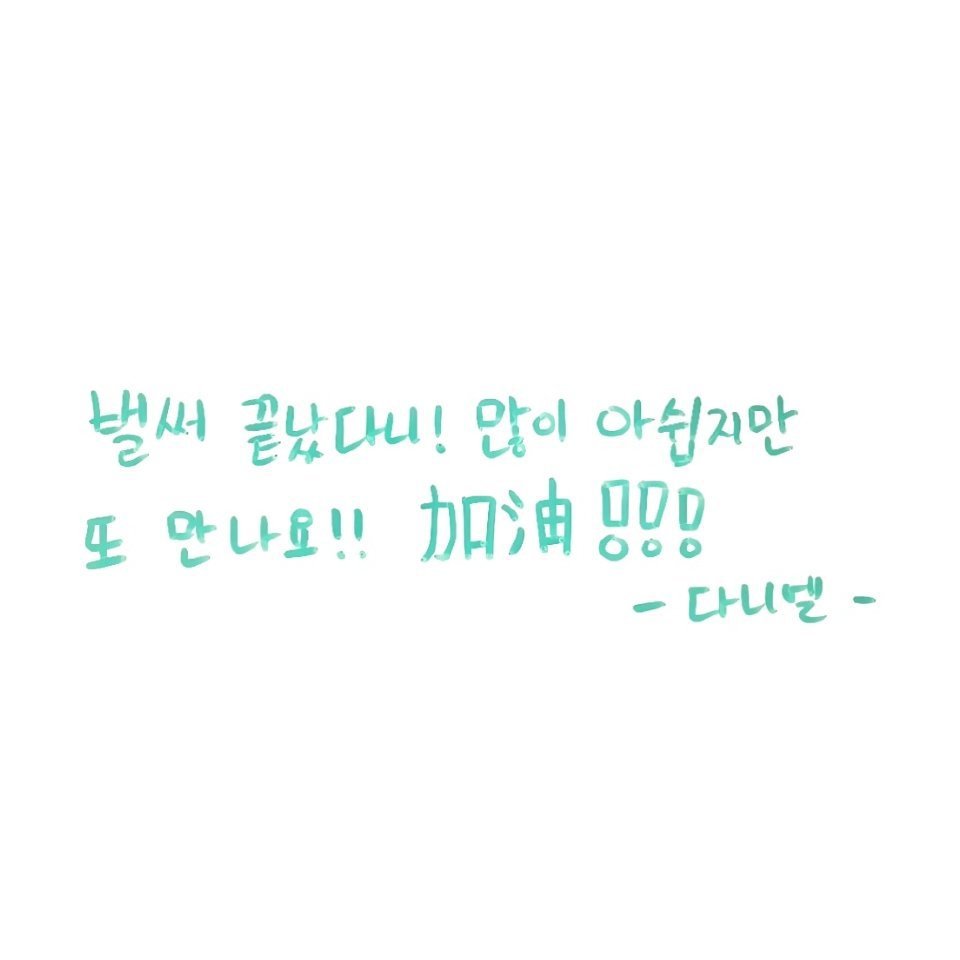 벌써 끝났다니! 많이 아쉽지만
또 만나요!! 加油!!!
- 다니엘 -